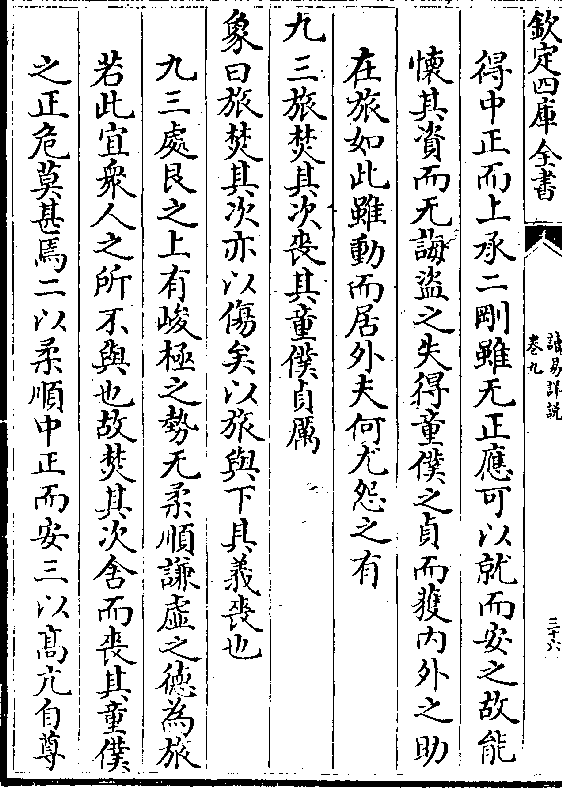 欽定四庫全書
讀易詳說
卷九
三十六
得中正而上承二剛雖无正應可以就而安之故能
懷其資而无誨盜之失得童僕之貞而獲内外之助
在旅如此雖動而居外夫何尤怨之有
九三旅焚其次喪其童僕貞厲
象曰旅焚其次亦以傷矣以旅與下其義喪也
九三處艮之上有峻極之勢无柔順謙虚之德為旅
若此宜衆人之所不與也故焚其次舍而喪其童僕
之正危莫甚焉二以柔順中正而安三以髙亢自尊